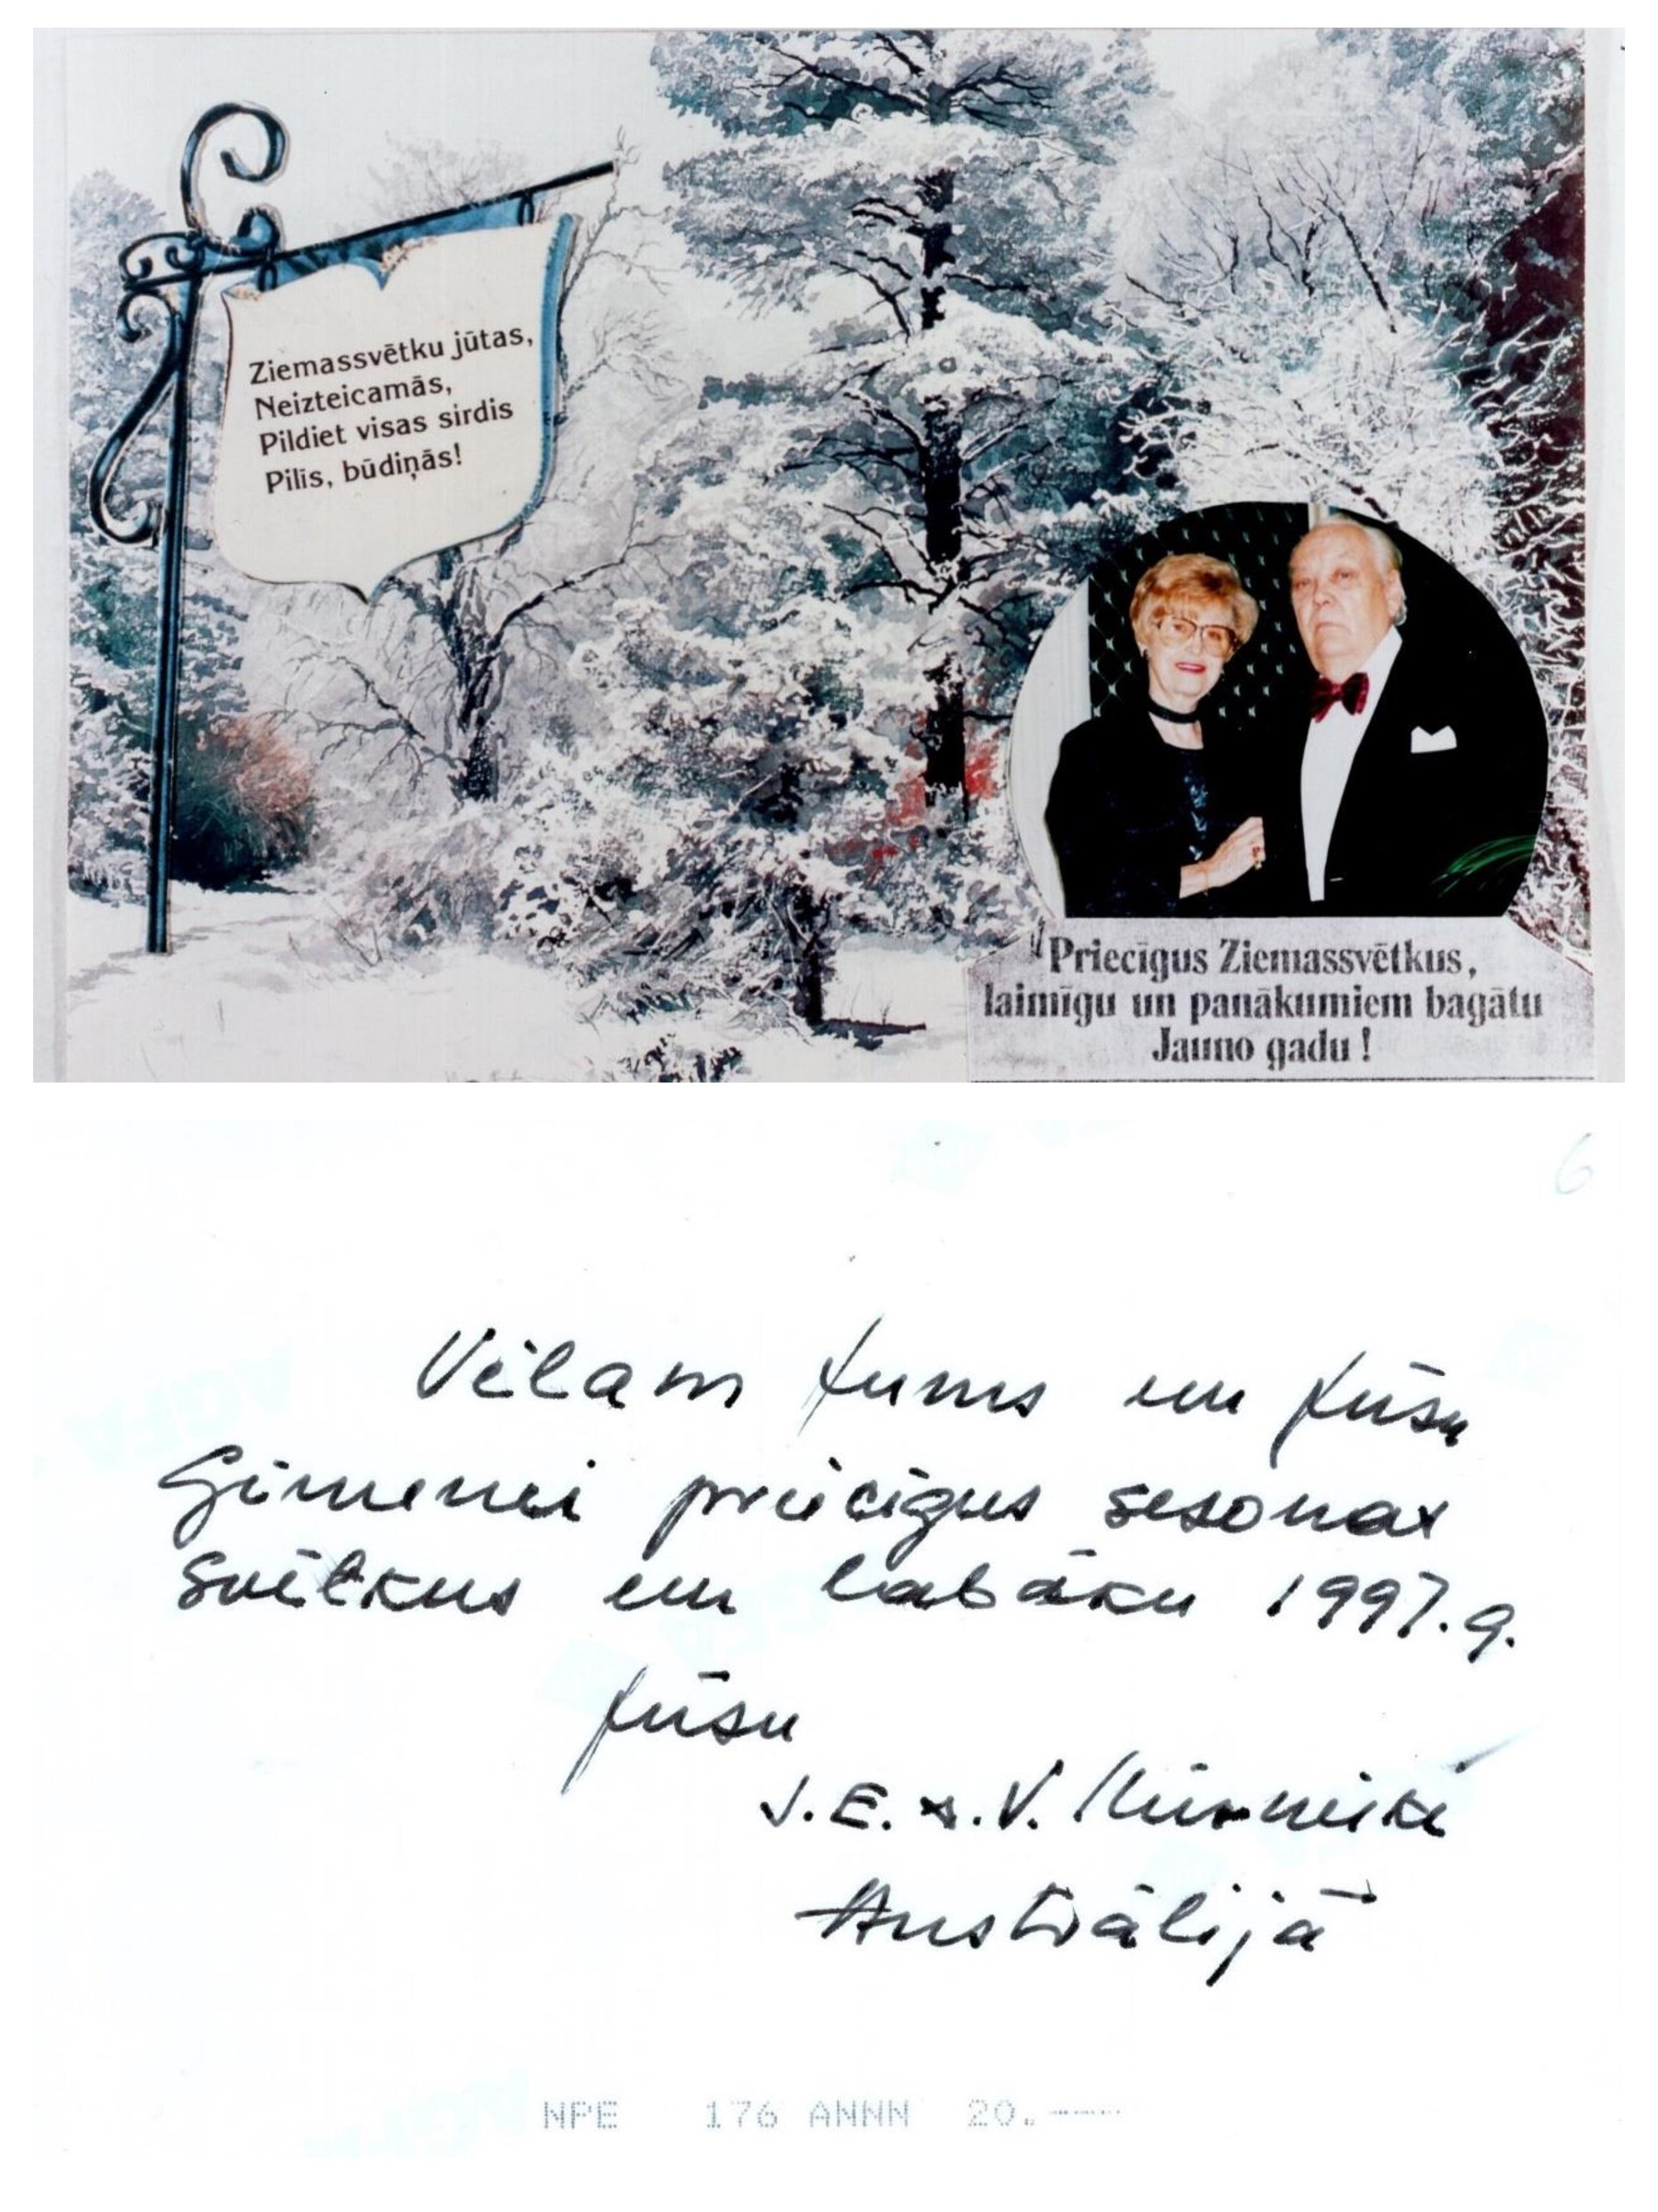 Ziemassvētku jūtas,
Neizteicamās,
Pildiet visas sirdis
Pilīs, būdiņās!
Priecīgus Ziemassvētkus,
laimīgu un panākumiem bagātu
Jauno gadu !
6
Vēlam Jums un Jūsu
Ģimenei priecīgus sesonas
svētkus un labāku 1997.g.
Jūsu
J.E. &.V.
Austrālijā
AGFA
NPE 176 ANNN 20.----